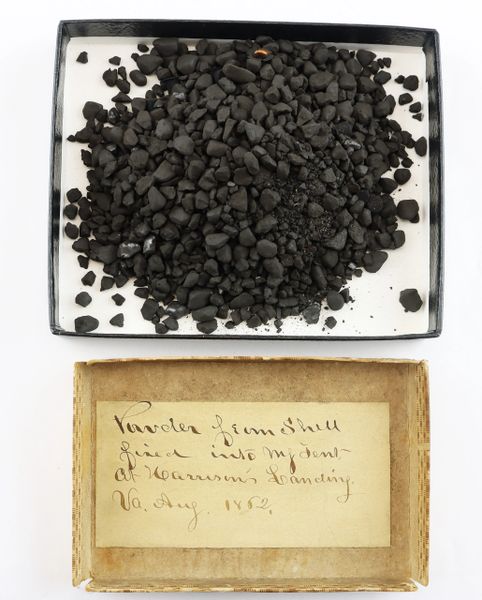 Powder from Shell
fired into my tent
at Harrison's Landing.
Va. Aug. 1862.